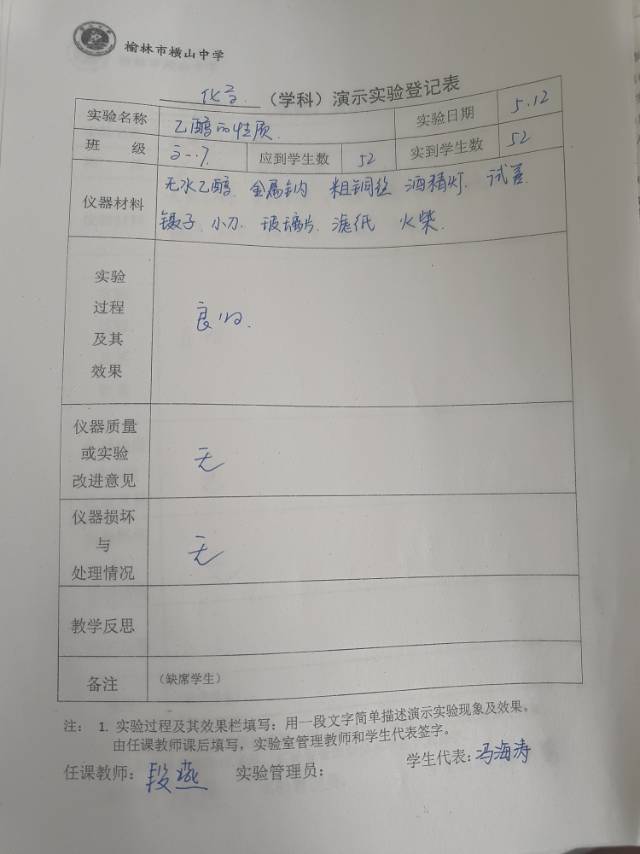 榆林市横山中学
化学 (学科) 演示实验登记表
实验名称 乙醇的性质 实验日期 5.12
班 级 高一.7 应到学生数 52 实到学生数 52
仪器材料 无水乙醇 金属钠 粗铜丝 酒精灯 试管
镊子 小刀 玻璃片 滤纸 火柴
实验
过程
及其
效果
良好.
仪器质量
或实验
改进意见
无
仪器损坏
与
处理情况
无
教学反思
备注 (缺席学生)
注: 1. 实验过程及其效果栏填写:用一段文字简单描述演示实验现象及效果。
由任课教师课后填写,实验室管理教师和学生代表签字。
任课教师: 段燕 实验管理员: 学生代表: 冯海涛